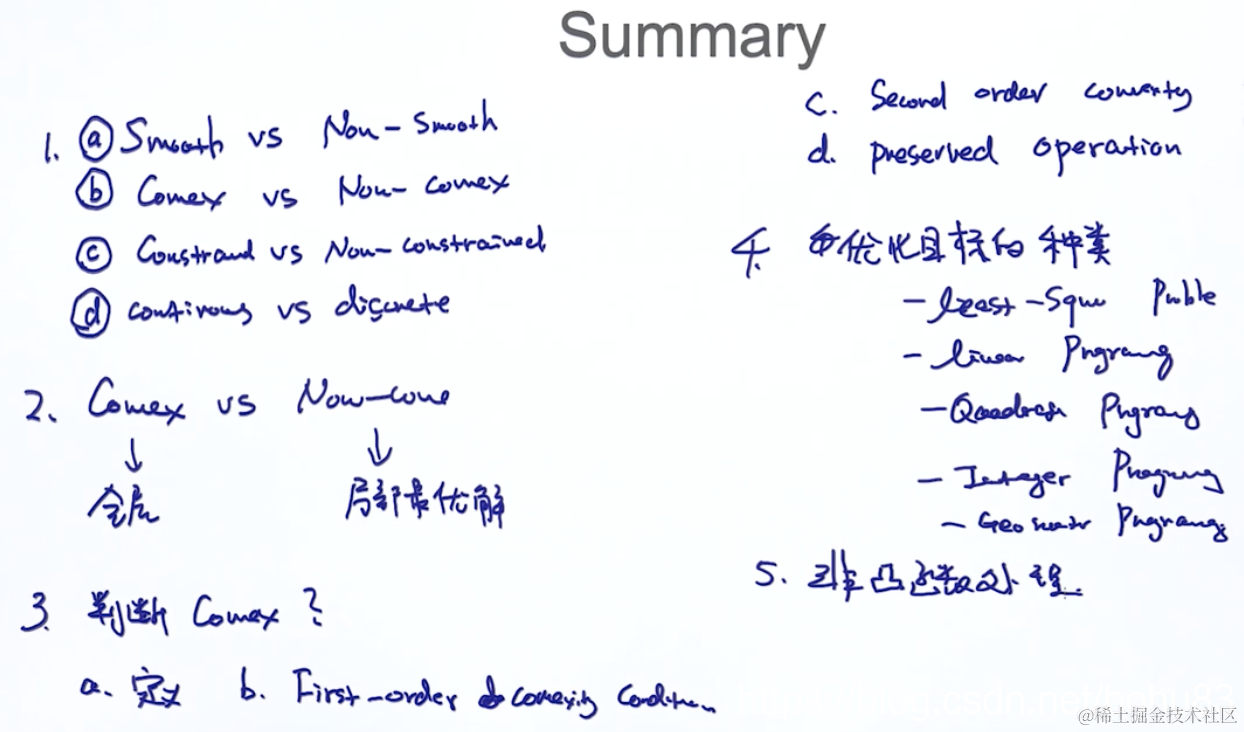 Summary
1. ⓐ Smooth vs Non-Smooth
ⓑ Convex vs Non-convex
ⓒ Constrained vs Non-constrained
ⓓ continuous vs discrete
2. Convex vs Non-conve
↓ ↓
全局 局部最优解
3. 判断 Convex ?
a. 定义 b. First-order convexity Condition
c. Second order convexity
d. preserved operation
4. 优化目标的种类
- least-Square Proble
- linear Programing
- Quadratic Programing
- Integer Programing
- Geometric Programing
5. 非凸函数处理
@稀土掘金技术社区